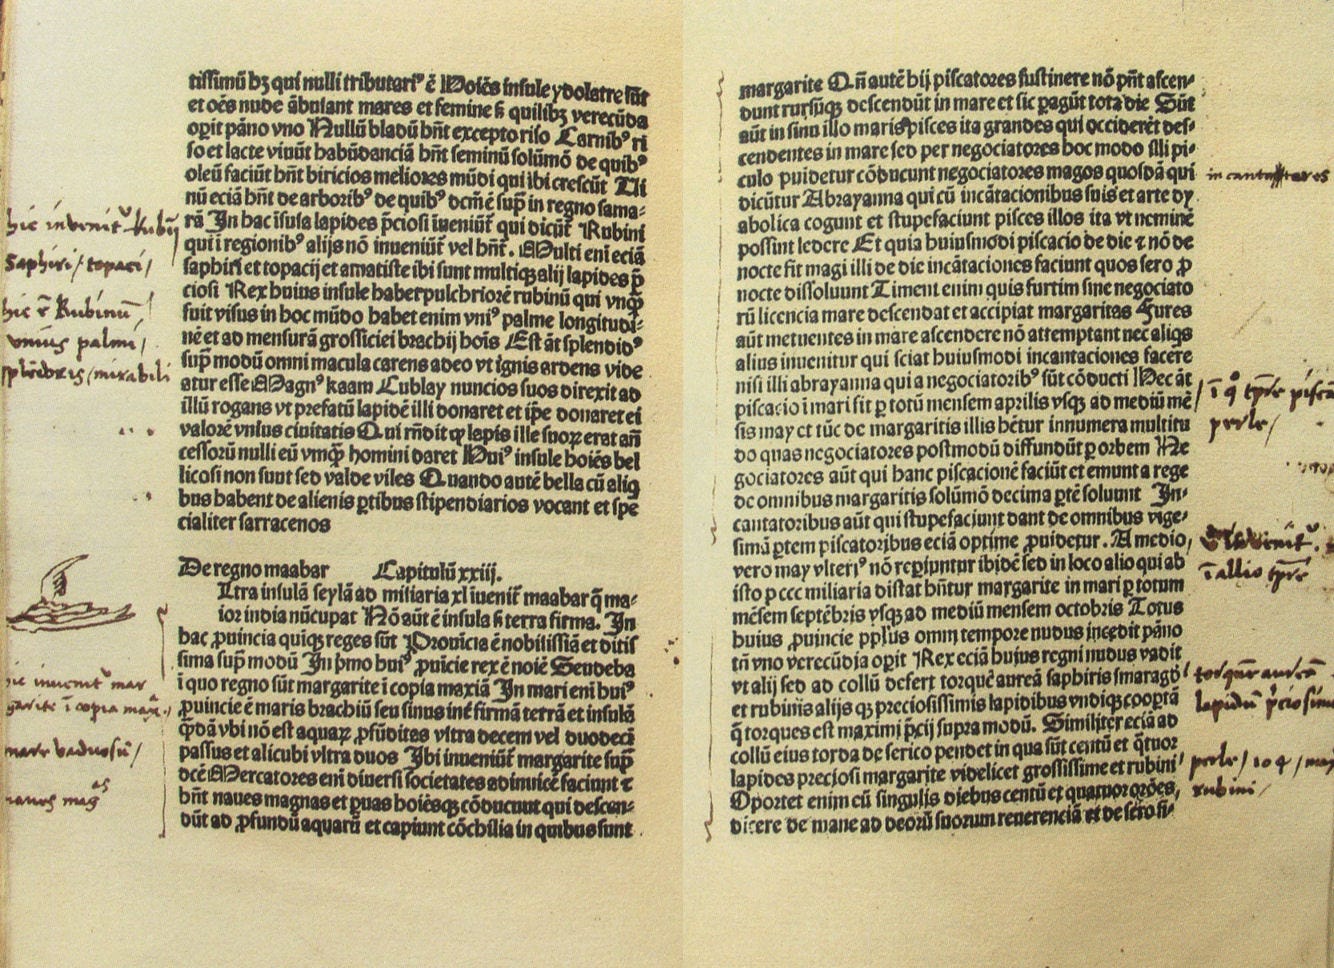 tissimū bꝫ qui nulli tributariꝰ ē Hoiēs insule ydolatre sūt
et oēs nude ābulant mares et femine sꝫ quilibꝫ verecūda
opit pāno vno Nullū bladū hn̄t excepto riso Carnibꝰ ri
so et lacte viuūt habūdanciā hn̄t seminū solūmō de quibꝰ
oleū faciūt hn̄t biricios meliores mūdi qui ibi crescūt Ui
nū eciā hn̄t de arboribꝰ de quibꝰ dcm̄ ē sup̄ in regno sama-
rā In hac īsula lapides p̄ciosi īueniūt̄ qui dicūt̄ Rubini
qui ī regionibꝰ alijs nō inueniūt̄ vel hn̄t. Multi eni eciā
saphiri et topacij et amatiste ibi sunt multiqꝫ alij lapides p̄
ciosi Rex huius insule habet pulchriorē rubinū qui vnqꝫ
fuit visus in hoc mūdo habet enim vniꝰ palme longitudi-
nē et ad mensurā grossiciei brachij hois Est āt splendidꝰ
sup̄ modū omni macula carens adeo vt ignis ardens vide
atur esse Magnꝰ kaam Cublay nuncios suos direxit ad
illū rogans vt prefatū lapidē illi donaret et ip̄e donaret ei
valorē vnius ciuitatis Qui rn̄dit ꝙ lapis ille suoꝝ erat an̄
cessorū nulli eū vmqꝫ homini daret Huiꝰ insule hoiēs bel
licosi non sunt sed valde viles Quando autē bella cū aliqꝫ
bus habent de alienis ꝑtibus stipendiarios vocant et spe
cialiter sarracenos
De regno maabar Capitulū xxiij.
Ltra insulā seylā ad miliaria xl īuenit̄ maabar q̄ ma-
ior india nūcupat Nō aūt ē insula sꝫ terra firma. In
hac ꝓuincia quiqꝫ reges sūt Prouīcia ē nobilissiā et ditis
sima sup̄ modū In p̄mo huiꝰ ꝓuīcie rex ē noiē Sendeba
ī quo regno sūt margarite ī copia maxiā In mari enī huiꝰ
ꝓuincie ē maris brachiū seu sinus int̄ firmā terrā et insulā
q̄dā vbi nō est aquaꝝ ꝓfūditas vltra decem vel duodecī
passus et alicubi vltra duos Ibi inueniūt̄ margarite sup̄
dcē Mercatores enī diuersi societates adinuicē faciunt ⁊
hn̄t naues magnas et ꝑuas hoiēsqꝫ cōducunt qui descen-
dūt ad ꝓfundū aquarū et capiunt cōchilia in quibus sunt
hic invenit̄ Rubī
Saphiri / topaci /
hic ē Rubinū
vnius palmi /
splēdoris / mirabili
hic invenit̄ mar
garite ī copia max.
mare vadosū /
naves mag
margarite Qn̄ autē hij piscatores sustinere nō pn̄t ascen-
dunt rursūqꝫ descendūt in mare et sic ꝑagūt tota die Sūt
aūt in sinu illo maris pisces ita grandes qui occiderēt des-
cendentes in mare sed per negociatores hoc modo illi pi-
culo ꝓuidetur cōducunt negociatores magos quosdā qui
dicūtur Abrayanna qui cū incātacionibus suis et arte dy
abolica cogunt et stupefaciunt pisces illos ita vt neminē
possint ledere Et quia huiusmodi piscacio de die ⁊ nō de
nocte fit magi illi de die incātaciones faciunt quos sero ꝓ
nocte dissoluunt Timent enim quis furtim sine negociato
rū licencia mare descendat et accipiat margaritas Fures
aūt metuentes in mare ascendere nō attemptant nec aliqs
alius inuenitur qui sciat huiusmodi incantaciones facere
nisi illi abrayanna qui a negociatoribꝰ sūt cōducti Hec āt
piscacio ī mari fit ꝑ totū mensem aprilis vsqꝫ ad mediū mē
sis may et tūc de margaritis illis hētur innumera multitu
do quas negociatores postmodū diffundūt ꝑ orbem Ne
gociatores aūt qui hanc piscacionē faciūt et emunt a rege
de omnibus margaritis solūmō decima ꝑtē soluunt In-
cantatoribus aūt qui stupefaciunt dant de omnibus vige-
simā ꝑtem piscatoribus eciā optime ꝓuidetur. A medio
vero may vlteriꝰ nō reperiuntur ibidē sed in loco alio qui ab
isto ꝑ ccc miliaria distat hn̄tur margarite in mari ꝑ totum
mēsem septēbris vsqꝫ ad mediū mensem octobris Totus
huius ꝓuincie pplꝰus omni tempore nudus incedit pāno
tn̄ vno verecūdia opit Rex eciā huius regni nudus vadit
vt alij sed ad collū defert torquē aureā saphiris smaragd
et rubinis alijs qꝫ preciosissimis lapidibus vndiqꝫ coopt̄ā
q̄ torques est maximi p̄cij supra modū. Similiter eciā ad
collū eius torda de serico pendet in qua sūt centū et q̄tuor
lapides preciosi margarite videlicet grossissime et rubini
Oportet enim eū singulis diebus centū et quatuor orōes
dicere de mane ad deorū suorum reuerenciā et de sero si-
in cantatores
ī qꝰ tp̄re pisca
perle /
invenit̄
ī allio tp̄re
torquē aureā
lapidū p̄ciosiu
perle / 104 / mag
rubini /